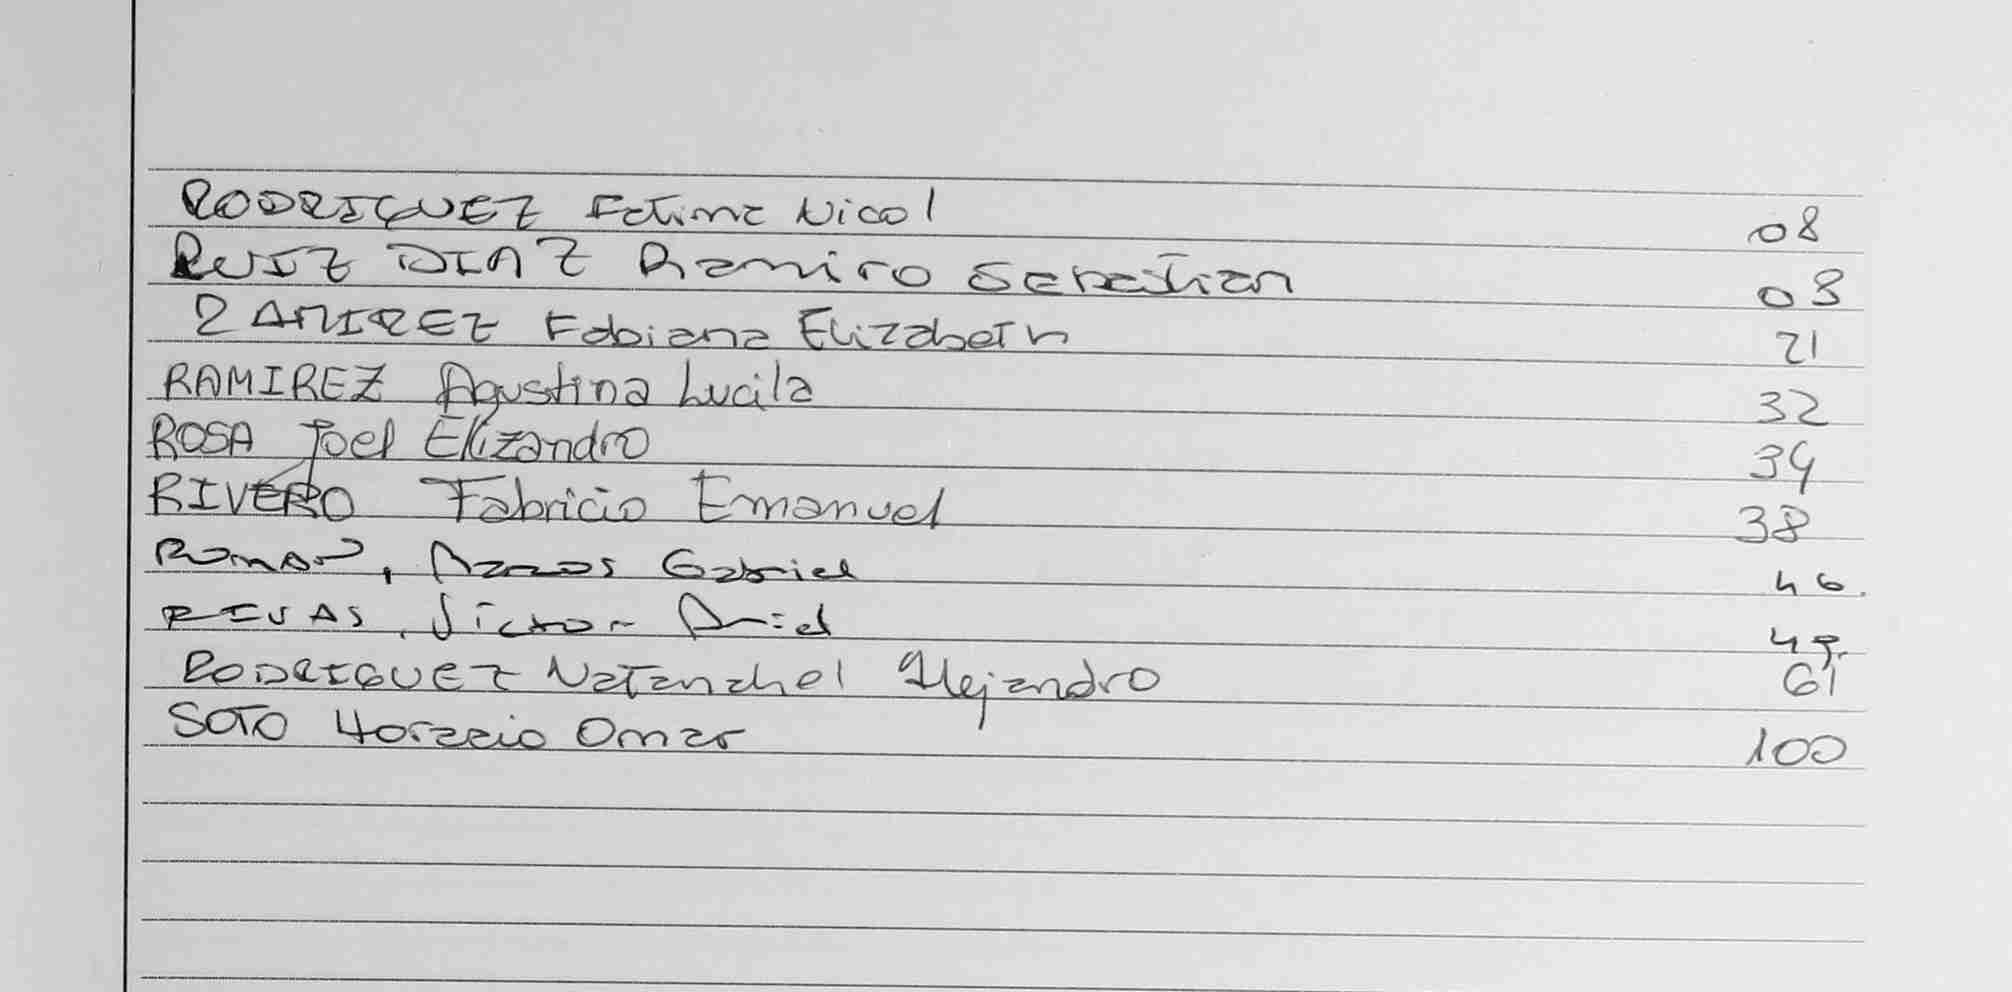 RODRIGUEZ Fatima Nicol 08
RUIZ DIAZ Ramiro Sebastian 09
RAMIREZ Fabiana Elizabeth 21
RAMIREZ Agustina Lucila 32
ROSA Joel Elizandro 34
RIVERO Fabricio Emanuel 38
Roman, Gabriel 46.
RIVAS, Victor Ariel 49.
RODRIGUEZ Natanahel Alejandro 61
SOTO Horacio Omar 100